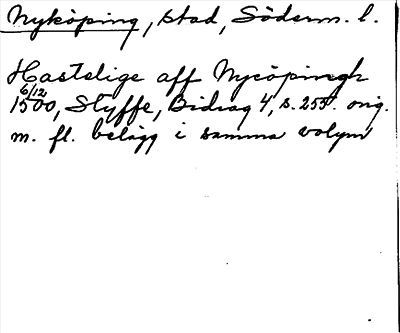 Nyköping, stad, Söderm. l.
Hastelige aff Nycöpingh
6/12
1500, Styffe, Bidrag 4, s. 255. orig.
m. fl. belägg i samma volym